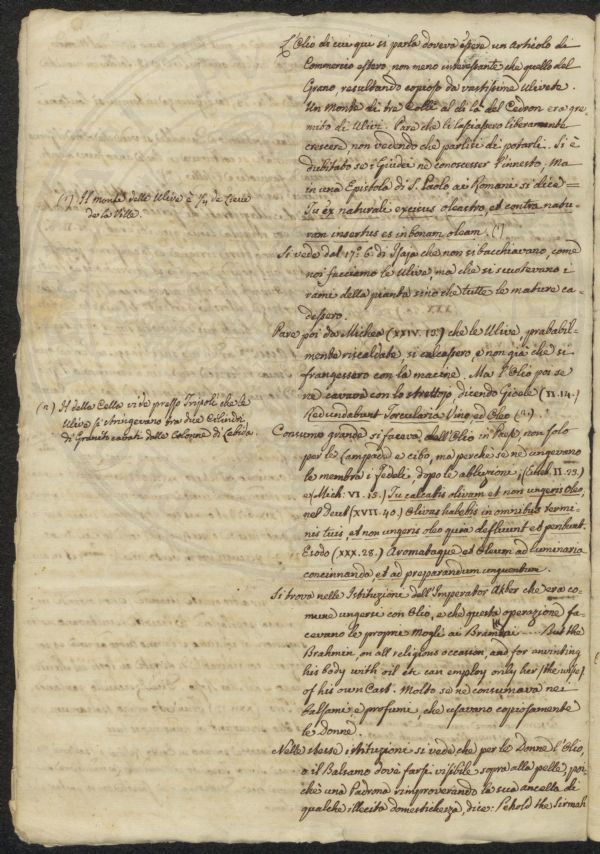 L'Olio di cui qui si parla doveva essere un Articolo di
Commercio estero, non meno interessante che quello del
Grano, resultando copioso da vastissime Ulivete.
Un Monte di tre Colli al di là del Cedron era gre
mito di Ulivi. Pare che li lasciassero liberamente
crescere, non vedendo che parlisi di potarli. Si è
dubitato se i Giudei ne conoscesser l'innesto, Ma
in una Epistola di S. Paolo ai Romani si dice =
Tu ex naturali excisus oleastro, et contra natu-
ram insertus es in bonam oleam. (1)
(1) Il Monte delle Ulive è 1/4 de
de la Ville.
Si vede dal 17.° 6. di Isaja che non si bacchiavano, come
noi facciamo le Ulive, ma che si scuotevano i
rami della pianta sino che tutte le mature ca-
dessero.
Pare poi da Michea (XXIV. 13.) che le Ulive probabil-
mente riscaldate, si calcassero, e non già che si
frangessero con la macine. Ma l'Olio poi se
ne cavava con lo strettojo, dicendo Gioele (II. 14.)
Redundabunt Torcularia Vino ed Oleo (2.)
(2) Il della Cella vide presso Tripoli che le
Ulive si stringevano tra due Cilindri
di Granito cavati dalle Colonne di Lebida.
Consumo grande si faceva dell'Olio in Paese, non solo
per le Lampadi e cibo, ma perchè se ne ungevano
le membra i Fedeli, dopo le abluzioni, II. 23.)
e Mich: VI. 15.) Tu calcabis olivam et non ungeris Oleo,
nel Deut (XVII. 40.) Olivas habebis in omnibus termi-
nis tuis, et non ungeris oleo quia defluunt et peribunt.
Esodo (XXX. 28.) Aromataque et Oleum ad luminaria
concinnanda, et ad preparandum unguentum.
Si trova nelle Istituzioni dell'Imperator Akber che era co-
mune ungersi con Olio, e che questa operazione fa-
cevano le proprie Mogli ai But the
Brahmin, on all religious occasion, and for anointing
his body with oil etc can employ only her (the wife)
of his own Cast. Molto se ne consumava nei
balsami e profumi, che usavano copiosamente
le Donne.
Nelle stesse istituzioni si vede che per le Donne l'Olio,
o il Balsamo dovè farsi visibile sopra alla pelle, poi-
chè una Padrona rimproverando la sua ancella di
qualche illecita domestichezza, dice: Behold the Sirmah